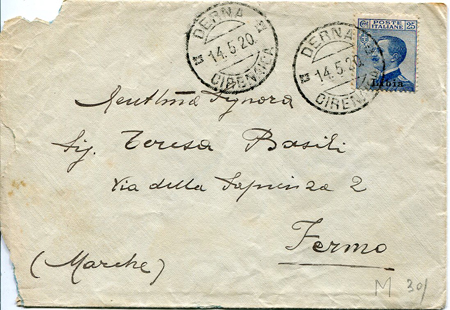 DERNA
14.5.20
CIRENAICA
DERNA
14.5.20
CIRENAICA
POSTE ITALIANE
25
Libia
Gent.ma Signora
Sig. Teresa Basili
Via della Sapienza 2
Fermo
(Marche)
M 30/